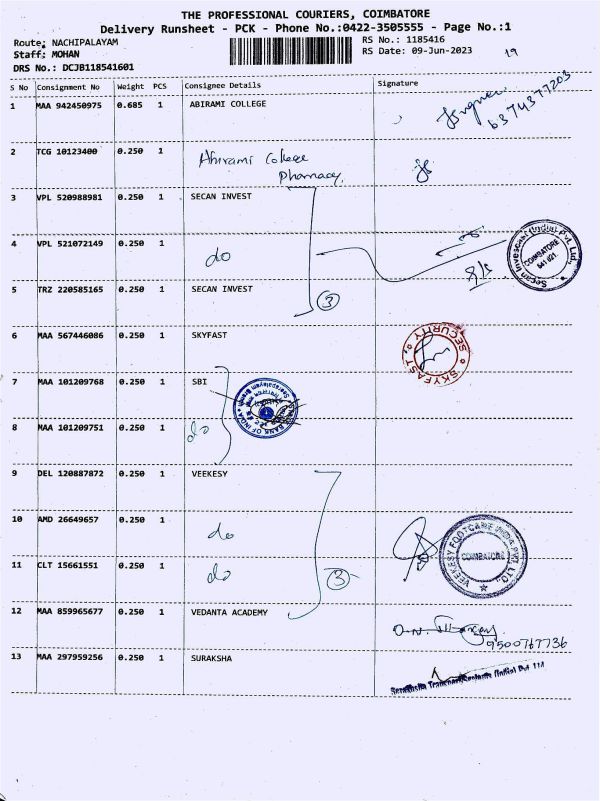 THE PROFESSIONAL COURIERS, COIMBATORE
Delivery Runsheet - PCK - Phone No.:0422-3505555 - Page No.:1
Route: NACHIPALAYAM RS No.: 1185416
Staff: MOHAN RS Date: 09-Jun-2023 19
DRS No.: DCJB118541601
S No Consignment No Weight PCS Consignee Details Signature
1 MAA 942450975 0.685 1 ABIRAMI COLLEGE
6374377203
2 TCG 10123400 0.250 1 Abirami College
Pharmacy
3 VPL 520988981 0.250 1 SECAN INVEST
4 VPL 521072149 0.250 1 do
Secan Invescast (India) Pvt. Ltd.
COIMBATORE
641 021.
5 TRZ 220585165 0.250 1 SECAN INVEST 3
6 MAA 567446086 0.250 1 SKYFAST
SKYFAST SECURITY
7 MAA 101209768 0.250 1 SBI
BANK OF INDIA
8 MAA 101209751 0.250 1 do
9 DEL 120887872 0.250 1 VEEKESY
10 AMD 26649657 0.250 1 do
VEEKESY FOOTCARE (INDIA) PVT. LTD.
COIMBATORE
11 CLT 15661551 0.250 1 do 3
12 MAA 859965677 0.250 1 VEDANTA ACADEMY
9500767736
13 MAA 297959256 0.250 1 SURAKSHA
(India) Pvt Ltd